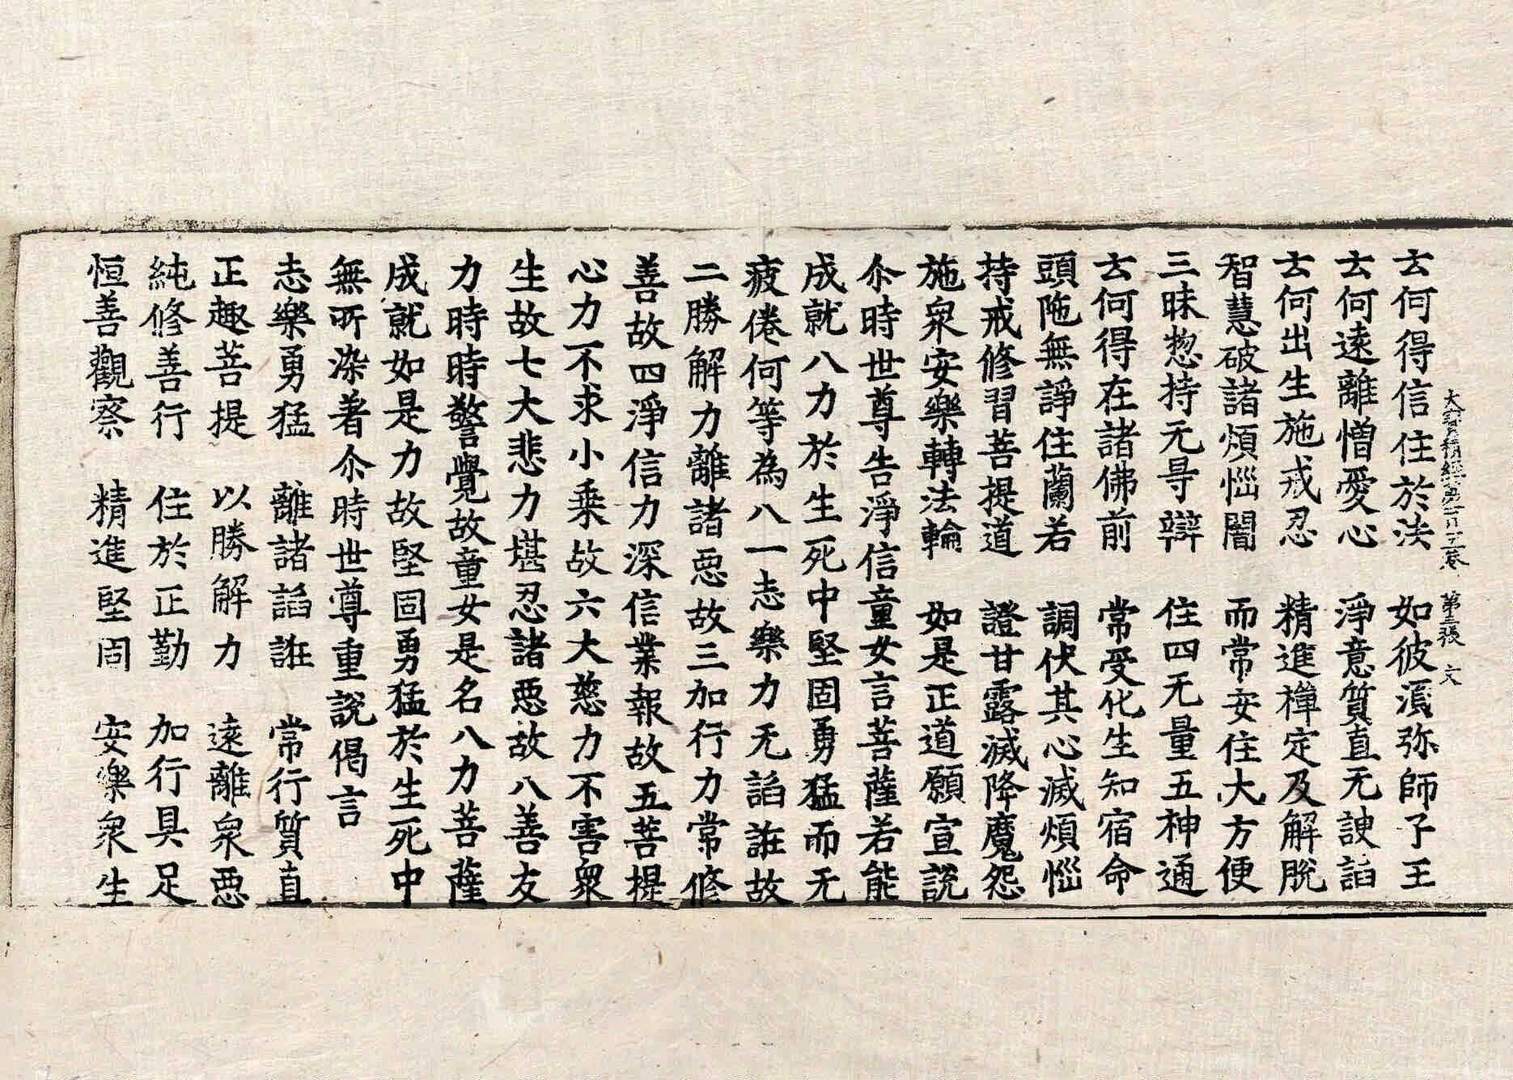 大寶積經第一百一十一卷 第三張 文
云何得信住於法 如彼湏弥師子王
云何遠離憎愛心 淨意質直无諛諂
云何出生施戒忍 精進禪定及解脫
智慧破諸煩惱闇 而常安住大方便
三昧惣持无㝵辯 住四无量五神通
云何得在諸佛前 常受化生知宿命
頭陁無諍住蘭若 調伏其心滅煩惱
持戒修習菩提道 證甘露滅降魔怨
施衆安樂轉法輪 如是正道願宣說
尒時世尊告淨信童女言菩薩若能
成就八力於生死中堅固勇猛而无
疲倦何等為八一志樂力无諂誑故
二勝解力離諸惡故三加行力常修
善故四淨信力深信業報故五菩提
心力不求小乗故六大慈力不害衆
生故七大悲力堪忍諸惡故八善友
力時時警覺故童女是名八力菩薩
成就如是力故堅固勇猛於生死中
無所染著尒時世尊重說偈言
志樂勇猛 離諸諂誑 常行質直
正趣菩提 以勝解力 遠離衆惡
純修善行 住於正勤 加行具足
恒善觀察 精進堅固 安樂衆生